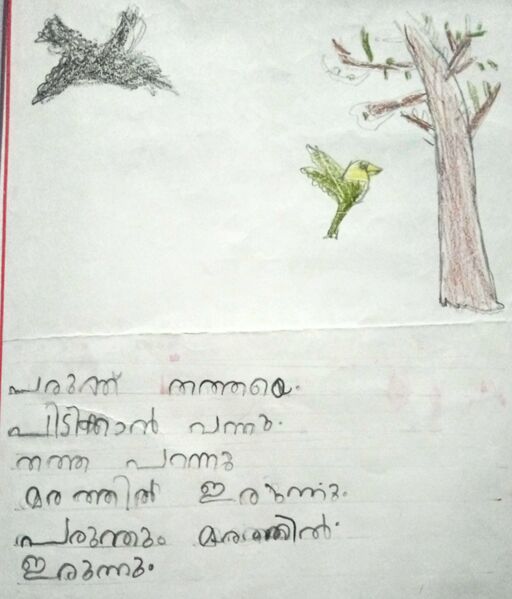 പരുന്ത് തത്തയെ.
പിടിക്കാൻ വന്നു.
തത്ത പറന്നു
മരത്തിൽ ഇരുന്നു.
പരുന്തും മരത്തിൽ.
ഇരുന്നു.